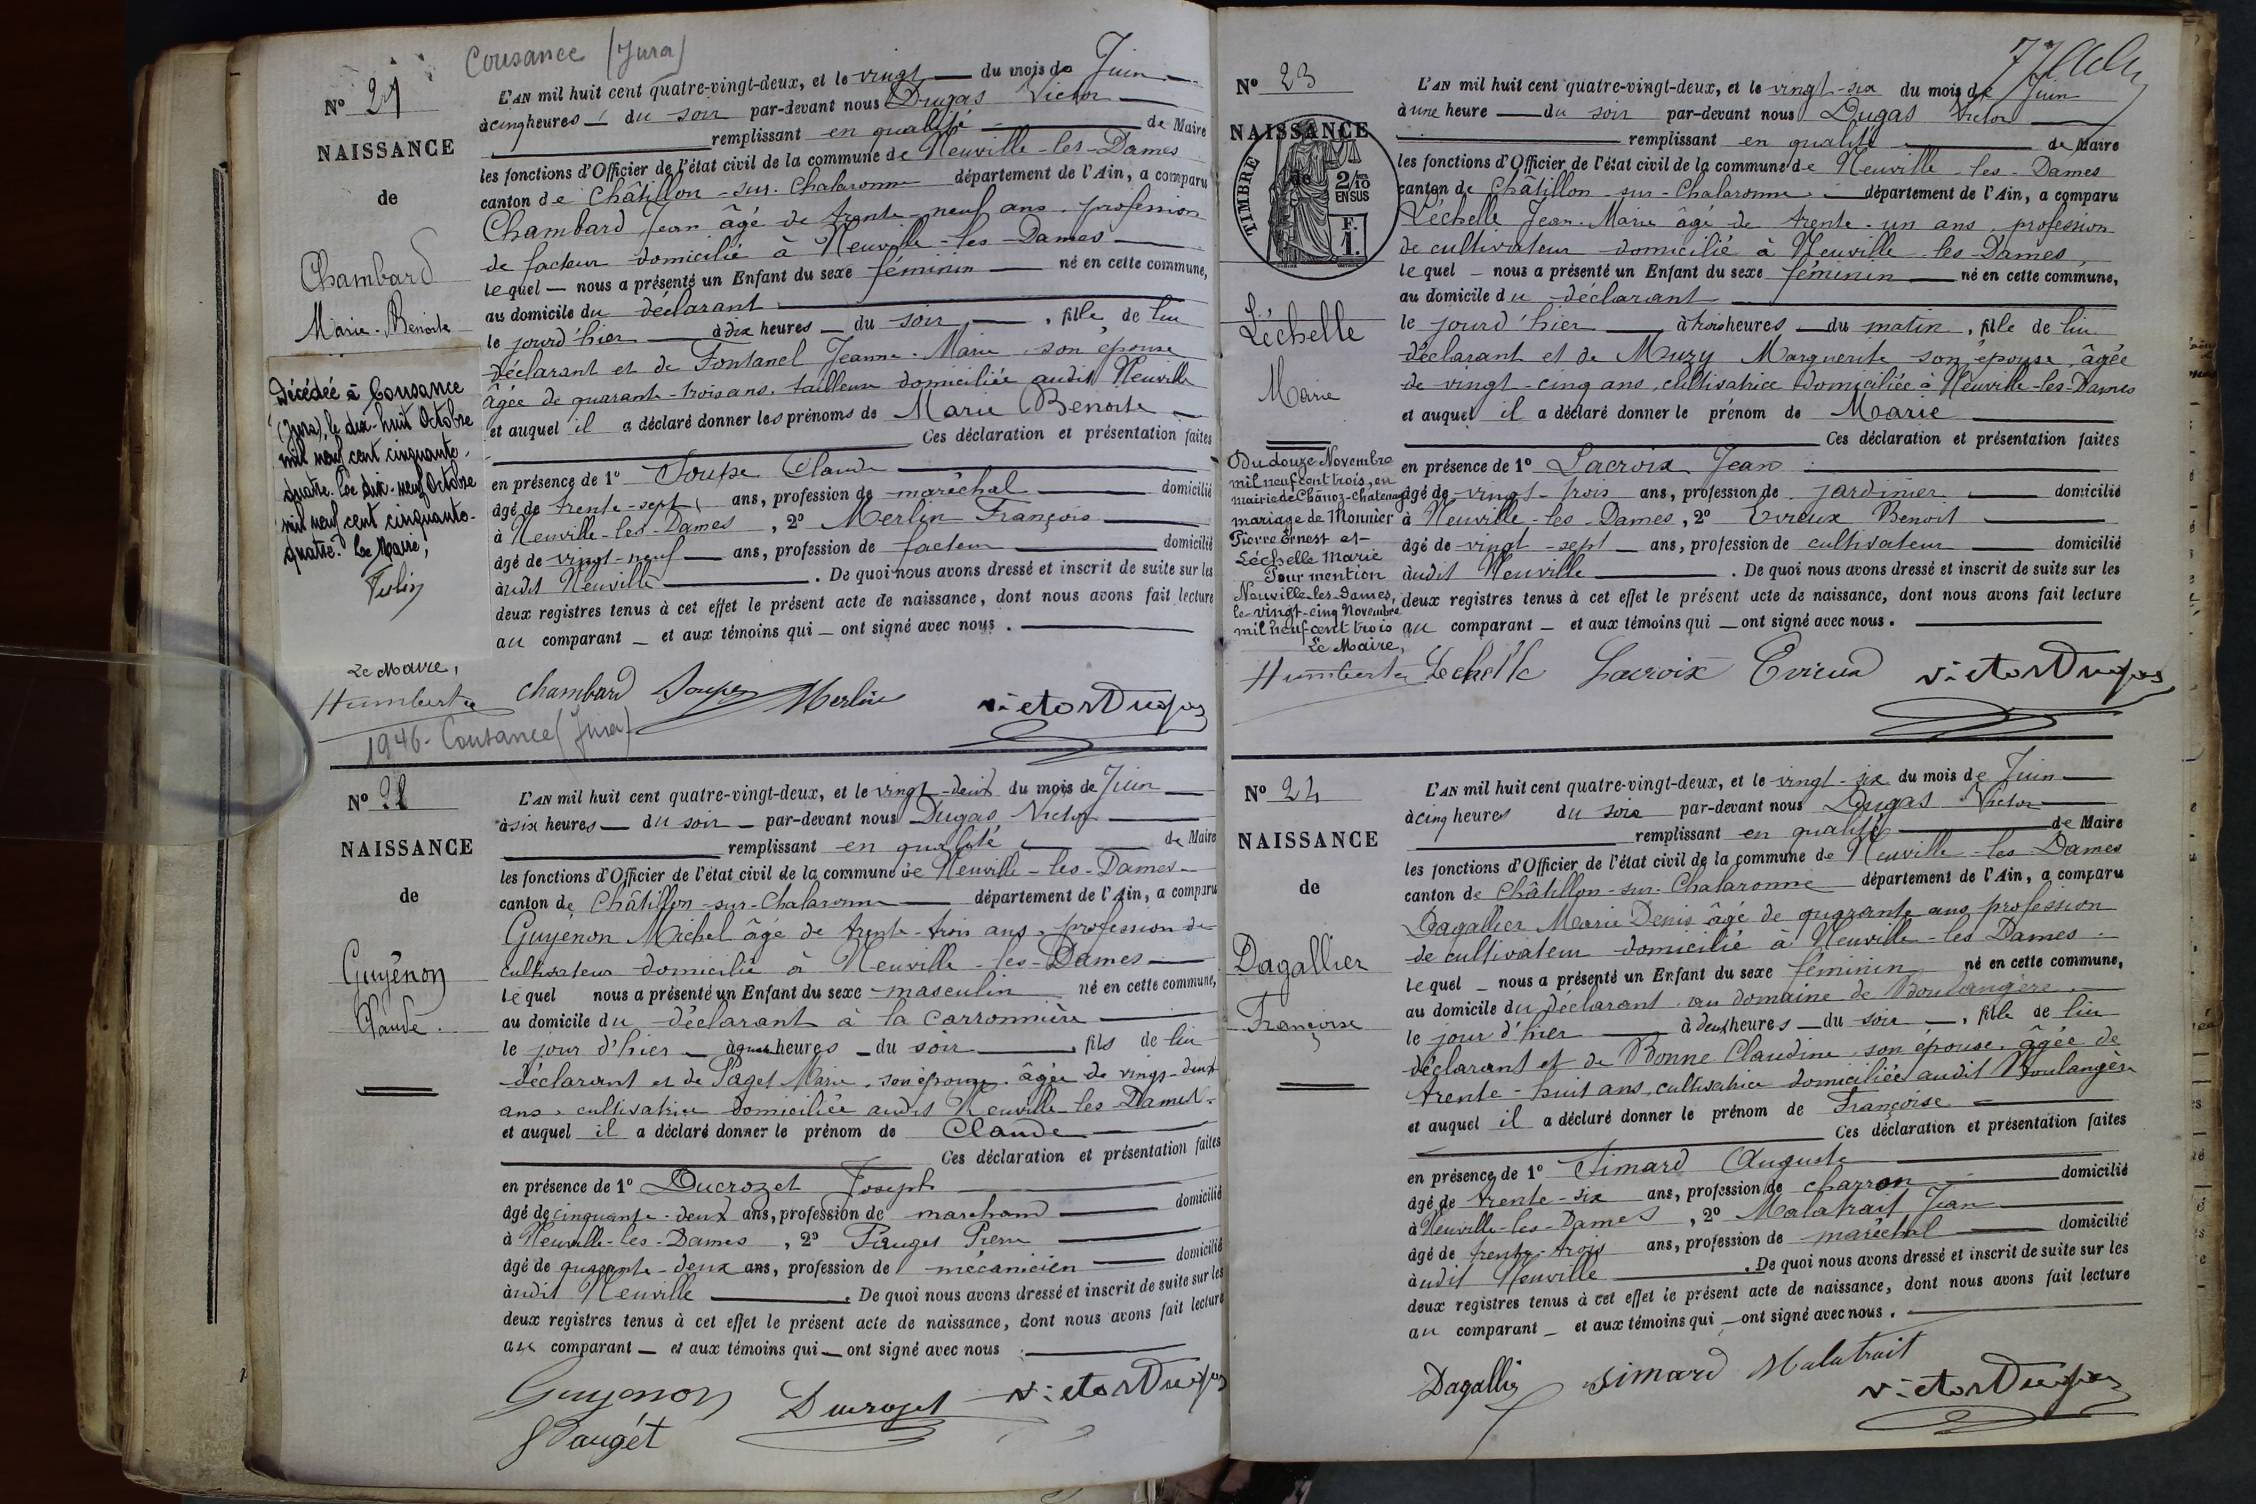 Cousance (Jura)
N° 21
NAISSANCE
de
Chambard
Marie-Benoite
Décédée à Cousance
(Jura), le dix-huit Octobre
mil neuf cent cinquante-
quatre. Le dix-neuf Octobre
mil neuf cent cinquante-
quatre. Le Maire,
Le Maire,
Humbert
L'AN mil huit cent quatre-vingt-deux, et le vingt du mois de Juin
à cinq heures du soir par-devant nous Dugas Victor
remplissant en qualité de Maire
les fonctions d'Officier de l'état civil de la commune de Neuville-les-Dames
canton de Châtillon-sur-Chalaronne département de l'Ain, a comparu
Chambard Jean âgé de trente-neuf ans, profession
de facteur domicilié à Neuville-les-Dames
lequel nous a présenté un Enfant du sexe féminin né en cette commune,
au domicile du déclarant
le jourd'hier à dix heures du soir, fille de lui
déclarant et de Fontanel Jeanne-Marie son épouse
âgée de quarante-trois ans, tailleuse domiciliée audit Neuville
et auquel il a déclaré donner les prénoms de Marie Benoite
Ces déclaration et présentation faites
en présence de 1° Soupe Claude
âgé de trente-sept ans, profession de maréchal domicilié
à Neuville-les-Dames, 2° Merlin François
âgé de vingt-neuf ans, profession de facteur domicilié
àudit Neuville. De quoi nous avons dressé et inscrit de suite sur les
deux registres tenus à cet effet le présent acte de naissance, dont nous avons fait lecture
au comparant et aux témoins qui ont signé avec nous.
chambard Soupe Merlin Victor Dugas
1946- Cousance (Jura)
N° 22
NAISSANCE
de
Guyénon
Claude.
L'AN mil huit cent quatre-vingt-deux, et le vingt-deux du mois de Juin
à six heures du soir par-devant nous Dugas Victor
remplissant en qualité de Maire
les fonctions d'Officier de l'état civil de la commune de Neuville-les-Dames
canton de Châtillon-sur-Chalaronne département de l'Ain, a comparu
Guyénon Michel âgé de trente-trois ans, profession de
cultivateur domicilié à Neuville-les-Dames
lequel nous a présenté un Enfant du sexe masculin né en cette commune,
au domicile du déclarant à la Carronnière
le jour d'hier à quatre heures du soir, fils de lui
déclarant et de Paget Marie, son épouse, âgée de vingt-deux
ans, cultivatrice domiciliée audit Neuville-les-Dames
et auquel il a déclaré donner le prénom de Claude
Ces déclaration et présentation faites
en présence de 1° Ducrozet Joseph
âgé de cinquante-deux ans, profession de marchand domicilié
à Neuville-les-Dames, 2° Pauget Pierre
âgé de quarante-deux ans, profession de mécanicien domicilié
àudit Neuville. De quoi nous avons dressé et inscrit de suite sur les
deux registres tenus à cet effet le présent acte de naissance, dont nous avons fait lecture
au comparant et aux témoins qui ont signé avec nous
Guyenon Ducrozet Victor Dugas
Pauget
N° 23
NAISSANCE
de
TIMBRE
2/10
EN SUS
F.
1.
Léchelle
Marie
Du douze Novembre
mil neuf cent trois, en
mairie de Chânoz-Chatenay
mariage de Monnier
Pierre Ernest et
Léchelle Marie
Pour mention
Neuville-les-Dames,
le vingt-cinq Novembre
mil neuf cent trois
Le Maire,
Humbert
L'AN mil huit cent quatre-vingt-deux, et le vingt-six du mois de Juin
à une heure du soir par-devant nous Dugas Victor
remplissant en qualité de Maire
les fonctions d'Officier de l'état civil de la commune de Neuville-les-Dames
canton de Châtillon-sur-Chalaronne département de l'Ain, a comparu
Léchelle Jean-Marie âgé de trente-un ans, profession
de cultivateur domicilié à Neuville-les-Dames,
lequel nous a présenté un Enfant du sexe féminin né en cette commune,
au domicile du déclarant
le jourd'hier à trois heures du matin, fille de lui
déclarant et de Muzy Marguerite son épouse, âgée
de vingt-cinq ans, cultivatrice domiciliée à Neuville-les-Dames
et auquel il a déclaré donner le prénom de Marie
Ces déclaration et présentation faites
en présence de 1° Lacroix Jean
âgé de vingt-trois ans, profession de jardinier domicilié
à Neuville-les-Dames, 2° Evieux Benoit
âgé de vingt-sept ans, profession de cultivateur domicilié
àudit Neuville. De quoi nous avons dressé et inscrit de suite sur les
deux registres tenus à cet effet le présent acte de naissance, dont nous avons fait lecture
au comparant et aux témoins qui ont signé avec nous.
Lechelle Lacroix Evieux Victor Dugas
N° 24
NAISSANCE
de
Dagallier
Françoise
L'AN mil huit cent quatre-vingt-deux, et le vingt-six du mois de Juin
à cinq heures du soir par-devant nous Dugas Victor
remplissant en qualité de Maire
les fonctions d'Officier de l'état civil de la commune de Neuville-les-Dames
canton de Châtillon-sur-Chalaronne département de l'Ain, a comparu
Dagallier Marie Denis âgé de quarante ans profession
de cultivateur domicilié à Neuville-les Dames.
lequel nous a présenté un Enfant du sexe féminin né en cette commune,
au domicile du déclarant au domaine de Boulangère
le jour d'hier à deux heures du soir, fille de lui
déclarant et de Bonne Claudine son épouse, âgée de
trente-huit ans, cultivatrice domiciliée audit Boulangère
et auquel il a déclaré donner le prénom de Françoise
Ces déclaration et présentation faites
en présence de 1° Simard Auguste
âgé de trente-six ans, profession de charron domicilié
à Neuville-les-Dames, 2° Malatrait Jean
âgé de trente-trois ans, profession de maréchal domicilié
àudit Neuville. De quoi nous avons dressé et inscrit de suite sur les
deux registres tenus à cet effet le présent acte de naissance, dont nous avons fait lecture
au comparant et aux témoins qui ont signé avec nous.
Dagallier Simard Malatrait
Victor Dugas